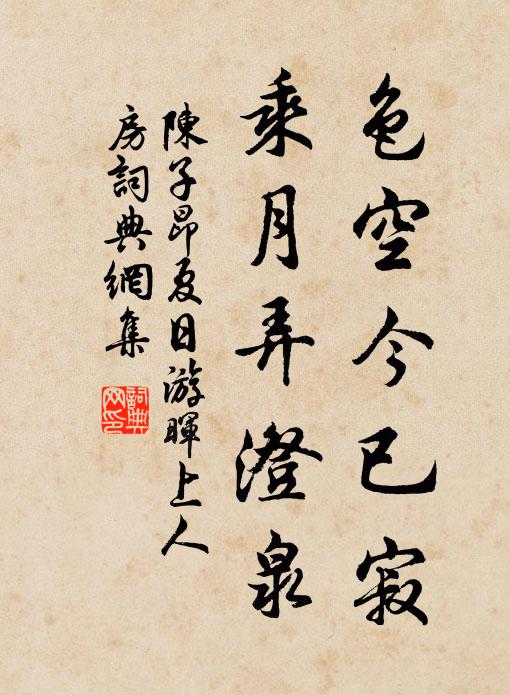 色空今已寂
乘月弄澄泉
陳子昂夏日游暉上人
房詞典網集
詞典网印